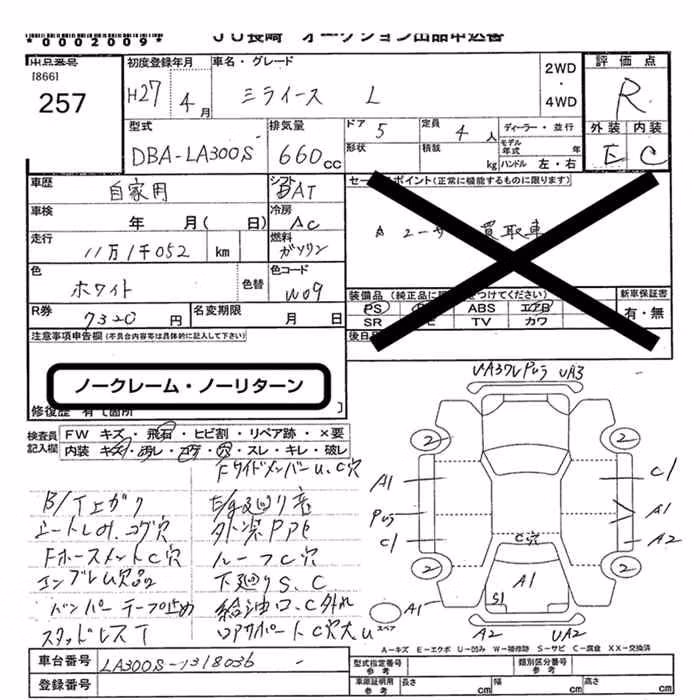 *0002009*
JU長崎 オークション出品申込書
出品番号
[866]
257
初度登録年月
H27 4月
車名・グレード
ミライース L
2WD
・
4WD
評価点
R
外装 内装
E C
型式
DBA-LA300S
排気量
660cc
ドア 5
形状
定員 4人
積載 kg
ディーラー・並行
モデル年式 年
ハンドル 左・右
車歴
自家用
シフト
DAT
セールスポイント(正常に機能するものに限ります)
ユーザー買取車
車検
年 月( 日)
冷房
AC
走行
11万1千052 km
燃料
ガソリン
色
ホワイト
色替
色コード
W09
装備品(純正品に〇をつけてください)
PS ABS エアB
SR TV カワ
新車保証書
有・無
R券
7320円
名変期限
月 日
注意事項申告欄(不具合内容等は具体的に記入して下さい)
ノークレーム・ノーリターン
修復歴 有
検査員記入欄
FW キズ・飛石・ヒビ割・リペア跡・×要
内装 キズ・汚レ・コゲ・穴・スレ・キレ・破レ
FサイドメンバーU、C穴
B/T上ガリ
E/g廻り音
シートレ切、コゲ穴
外装PPE
FホースメントC穴
ルーフC穴
エンブレム欠品
下廻りS、C
バンパーテープ止め
給油口、C外れ
スタッドレスT
ロアサポートC穴大U
UA3 UA3
2 2
A1 C1
A1
C1 A2
2 2
C穴
A1
S1
A1
スペア
A2 UA2
A-キズ E-エクボ U-凹み W-補修跡 S-サビ C-腐食 XX-交換済
車台番号
LA300S-1318036
登録番号
型式指定番号
参考
類別区分番号
参考
車庫証明用
参考
長さ cm
幅 cm
高さ cm